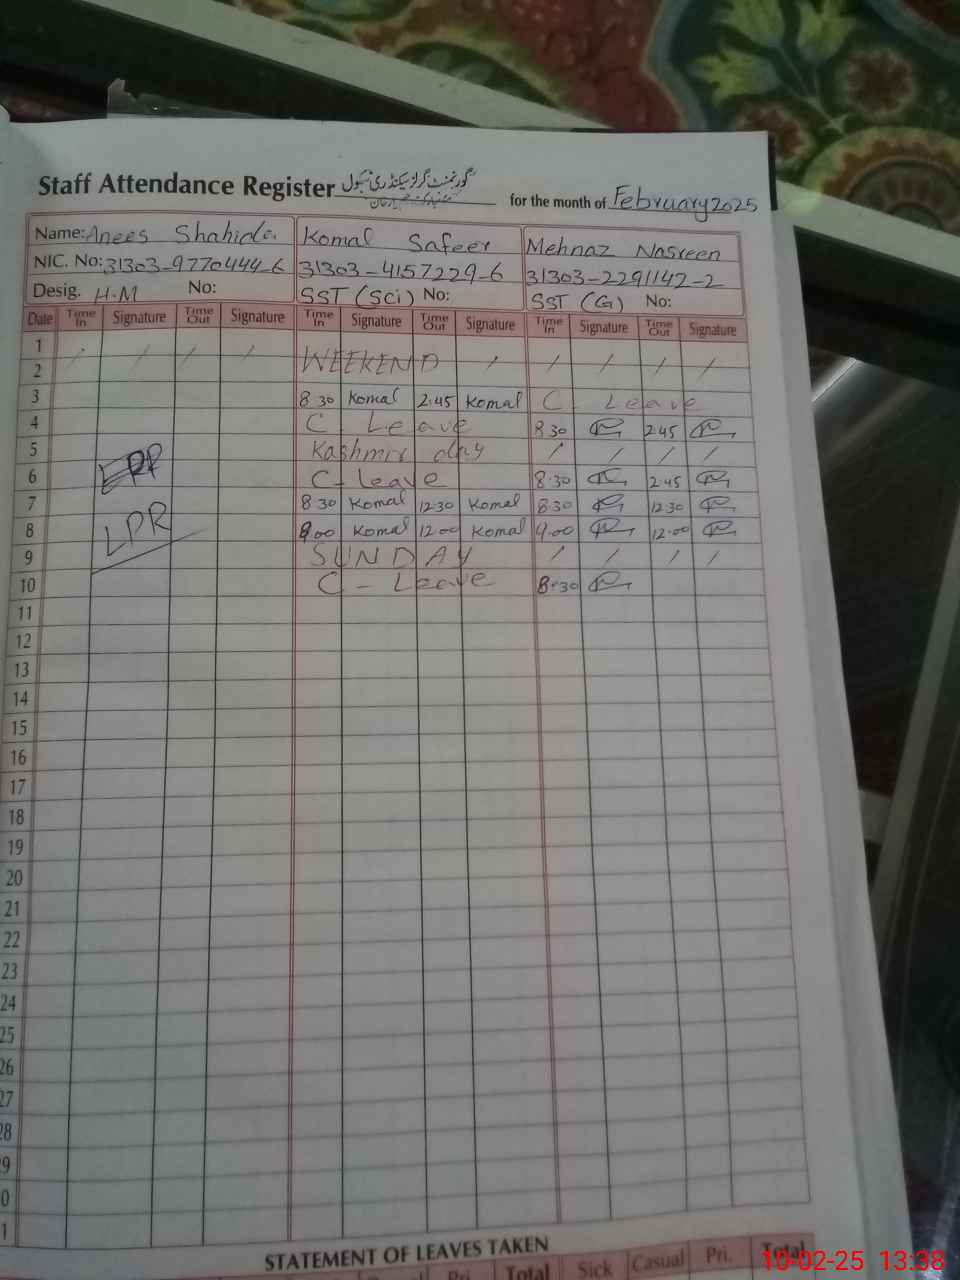 Staff Attendance Register گورنمنٹ گرلز سیکنڈری سکول for the month of February 2025
Name: Anees Shahida. Komal Safeer Mehnaz Nasreen
NIC. No: 31303-9770444-6 31303-4157229-6 31303-2291142-2
Desig. H.M No: SST (Sci) No: SST (G) No:
Date Time In Signature Time Out Signature Time In Signature Time Out Signature Time In Signature Time Out Signature
1
2 / / / / WEEKEND / / / / /
3 8 30 Komal 2.45 Komal C Leave
4 C - Leave 8 30 2.45
5 Kashmir day / / / /
6 C - leave 8.30 2.45
7 8 30 Komal 12.30 Komal 8.30 12.30
8 LPR 9.00 Komal 12.00 Komal 9.00 12.00
9 SUNDAY / / / /
10 C - Leave 8.30
11
12
13
14
15
16
17
18
19
20
21
22
23
24
25
26
27
28
9
0
1
STATEMENT OF LEAVES TAKEN
Pri. Total Sick Casual Pri. Total
10-02-25 13:38